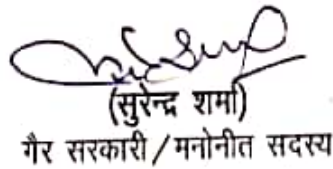 (सुरेन्द्र शर्मा)
गैर सरकारी/मनोनीत सदस्य